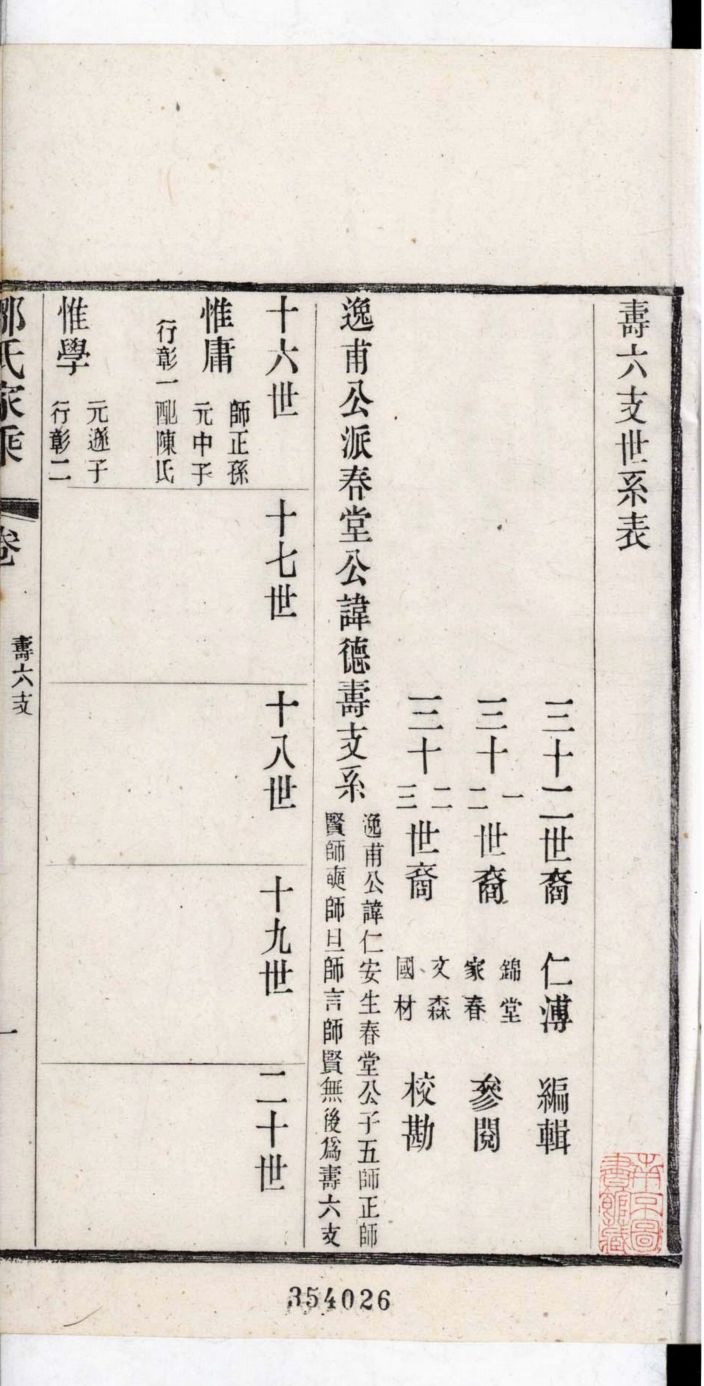 壽六支世系表
三十二世裔 仁溥 編輯
三十一二世裔 錦堂 家春 參閱
三十二三世裔 文森 國材 校勘
逸甫公派春堂公諱德壽支系
逸甫公諱仁安生春堂公子五師正師
賢師奭師旦師言師賢無後爲壽六支
十六世
十七世
十八世
十九世
二十世
惟庸
師正孫
元中子
行彰一配陳氏
惟學
元遜子
行彰二
鄒氏家乘
卷
壽六支
一
南京圖書館藏
354026